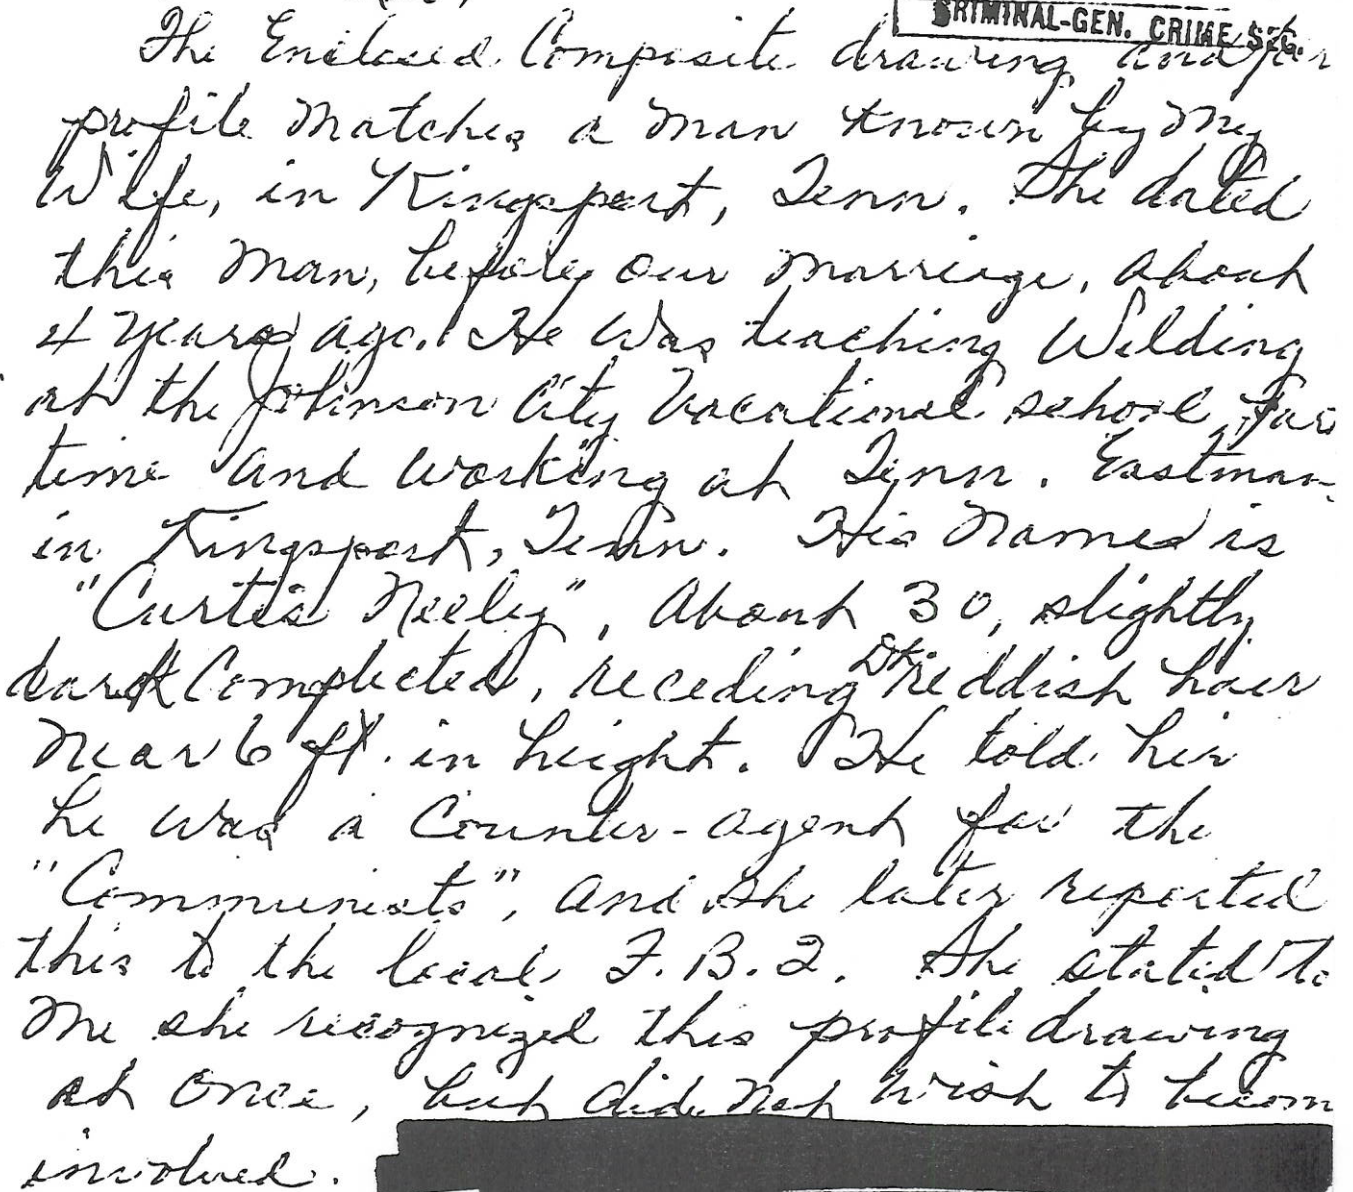 CRIMINAL-GEN. CRIME SEC.
The Enclosed Composite drawing and per
profile Matches a man known by My
Wife, in Kingsport, Tenn. She dated
this Man, before our marriage, about
4 years ago. He was teaching Welding
at the Johnson City Vocational school par
time and working at Tenn. Eastman
in Kingsport, Tenn. His Name is
"Curtis Neeley", About 30, slightly
dark Complected, receding Dk. reddish hair
Near 6 ft. in height. He told her
he was a Counter-agent for the
"Communists", and she later reported
this to the local F.B.I. She stated to
Me she recognized this profile drawing
at once, but did not wish to becom
involved.